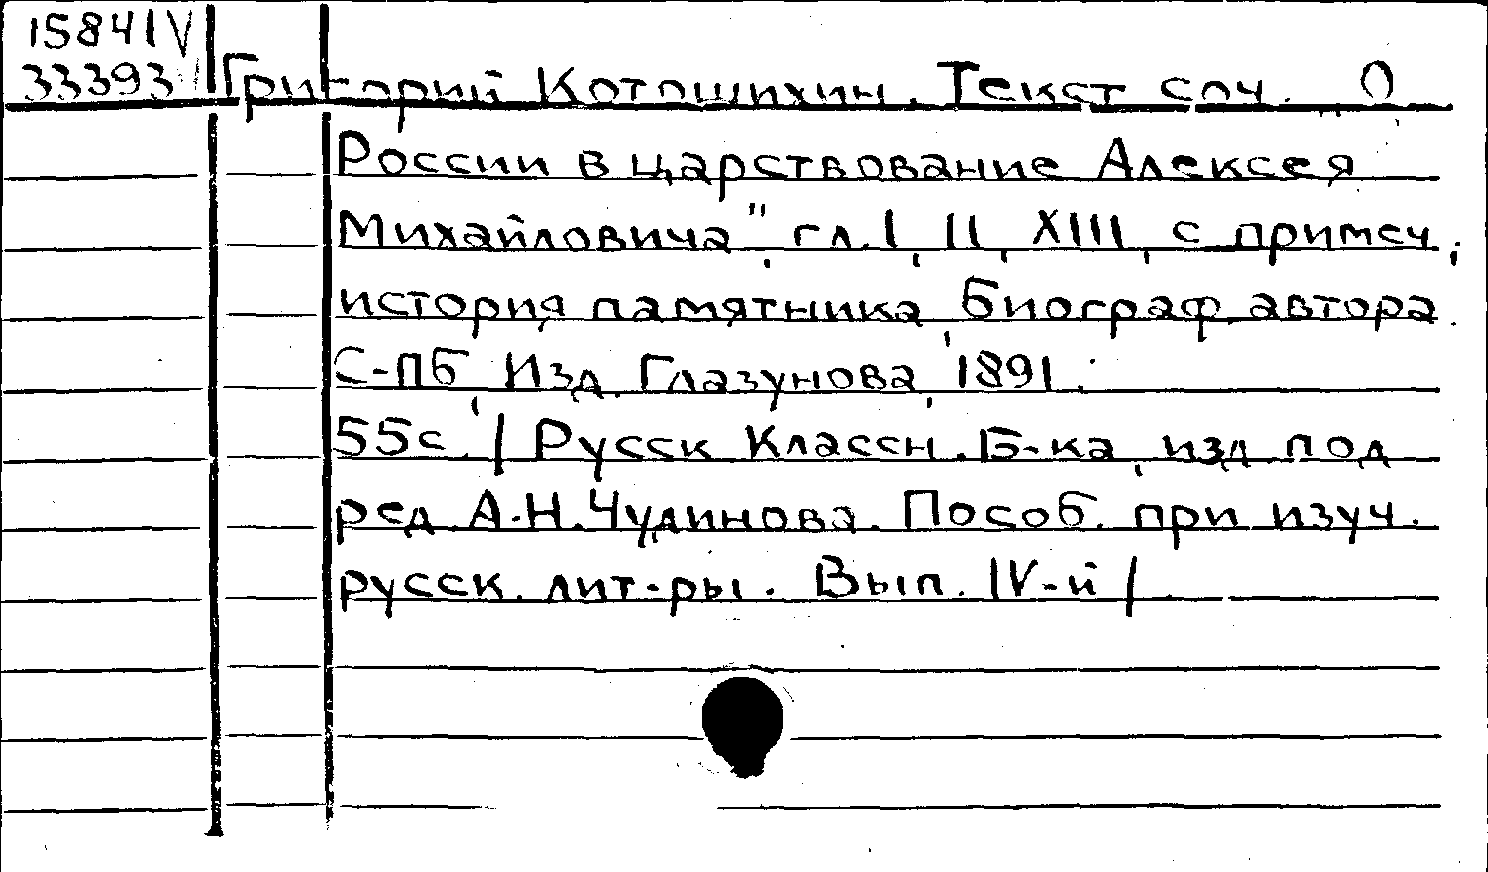 15841 V
33393 Григорий Котошихин. Текст соч. „О
России в царствование Алексея
Михайловича", гл. I, II, XIII, с примеч.,
история памятника, биограф. автора.
С-ПБ, Изд. Глазунова, 1891.
55с. / Русск Классн. Б-ка, изд под
ред. А.Н. Чудинова. Пособ. при изуч.
русск. лит-ры. Вып. IV-й /